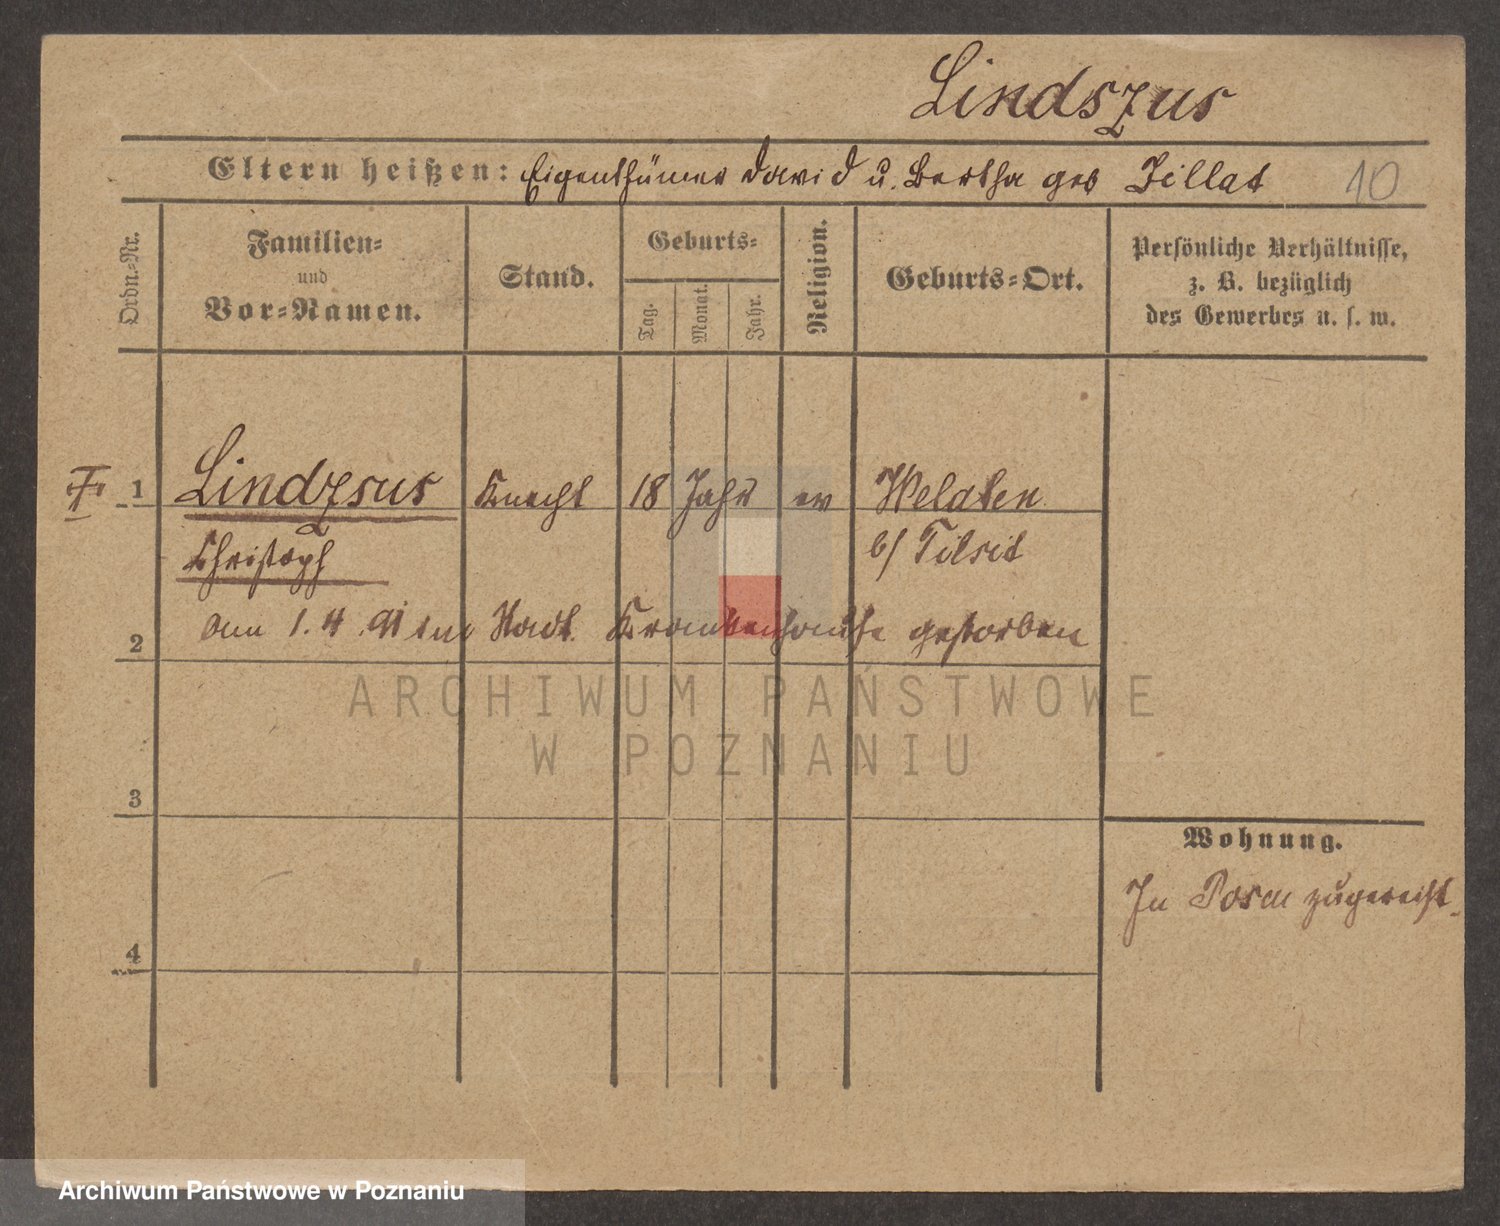 Lindszus
Eltern heißen: Eigenthümer David u. Bertha geb Zillat 10
Ordn.-Nr.
Familien-
und
Vor-Namen.
Stand.
Geburts-
Tag.
Monat.
Jahr.
Religion.
Geburts-Ort.
Persönliche Verhältnisse,
z. B. bezüglich
des Gewerbes u. s. w.
1 Lindzsus Knecht 18 Jahr ev Welaten
Christoph b/ Tilsit
2 am 1. 4. 91 im Stadt. Krankenhause gestorben
ARCHIWUM PAŃSTWOWE
W POZNANIU
3
Wohnung.
In Posen zugereist.
4
Archiwum Państwowe w Poznaniu